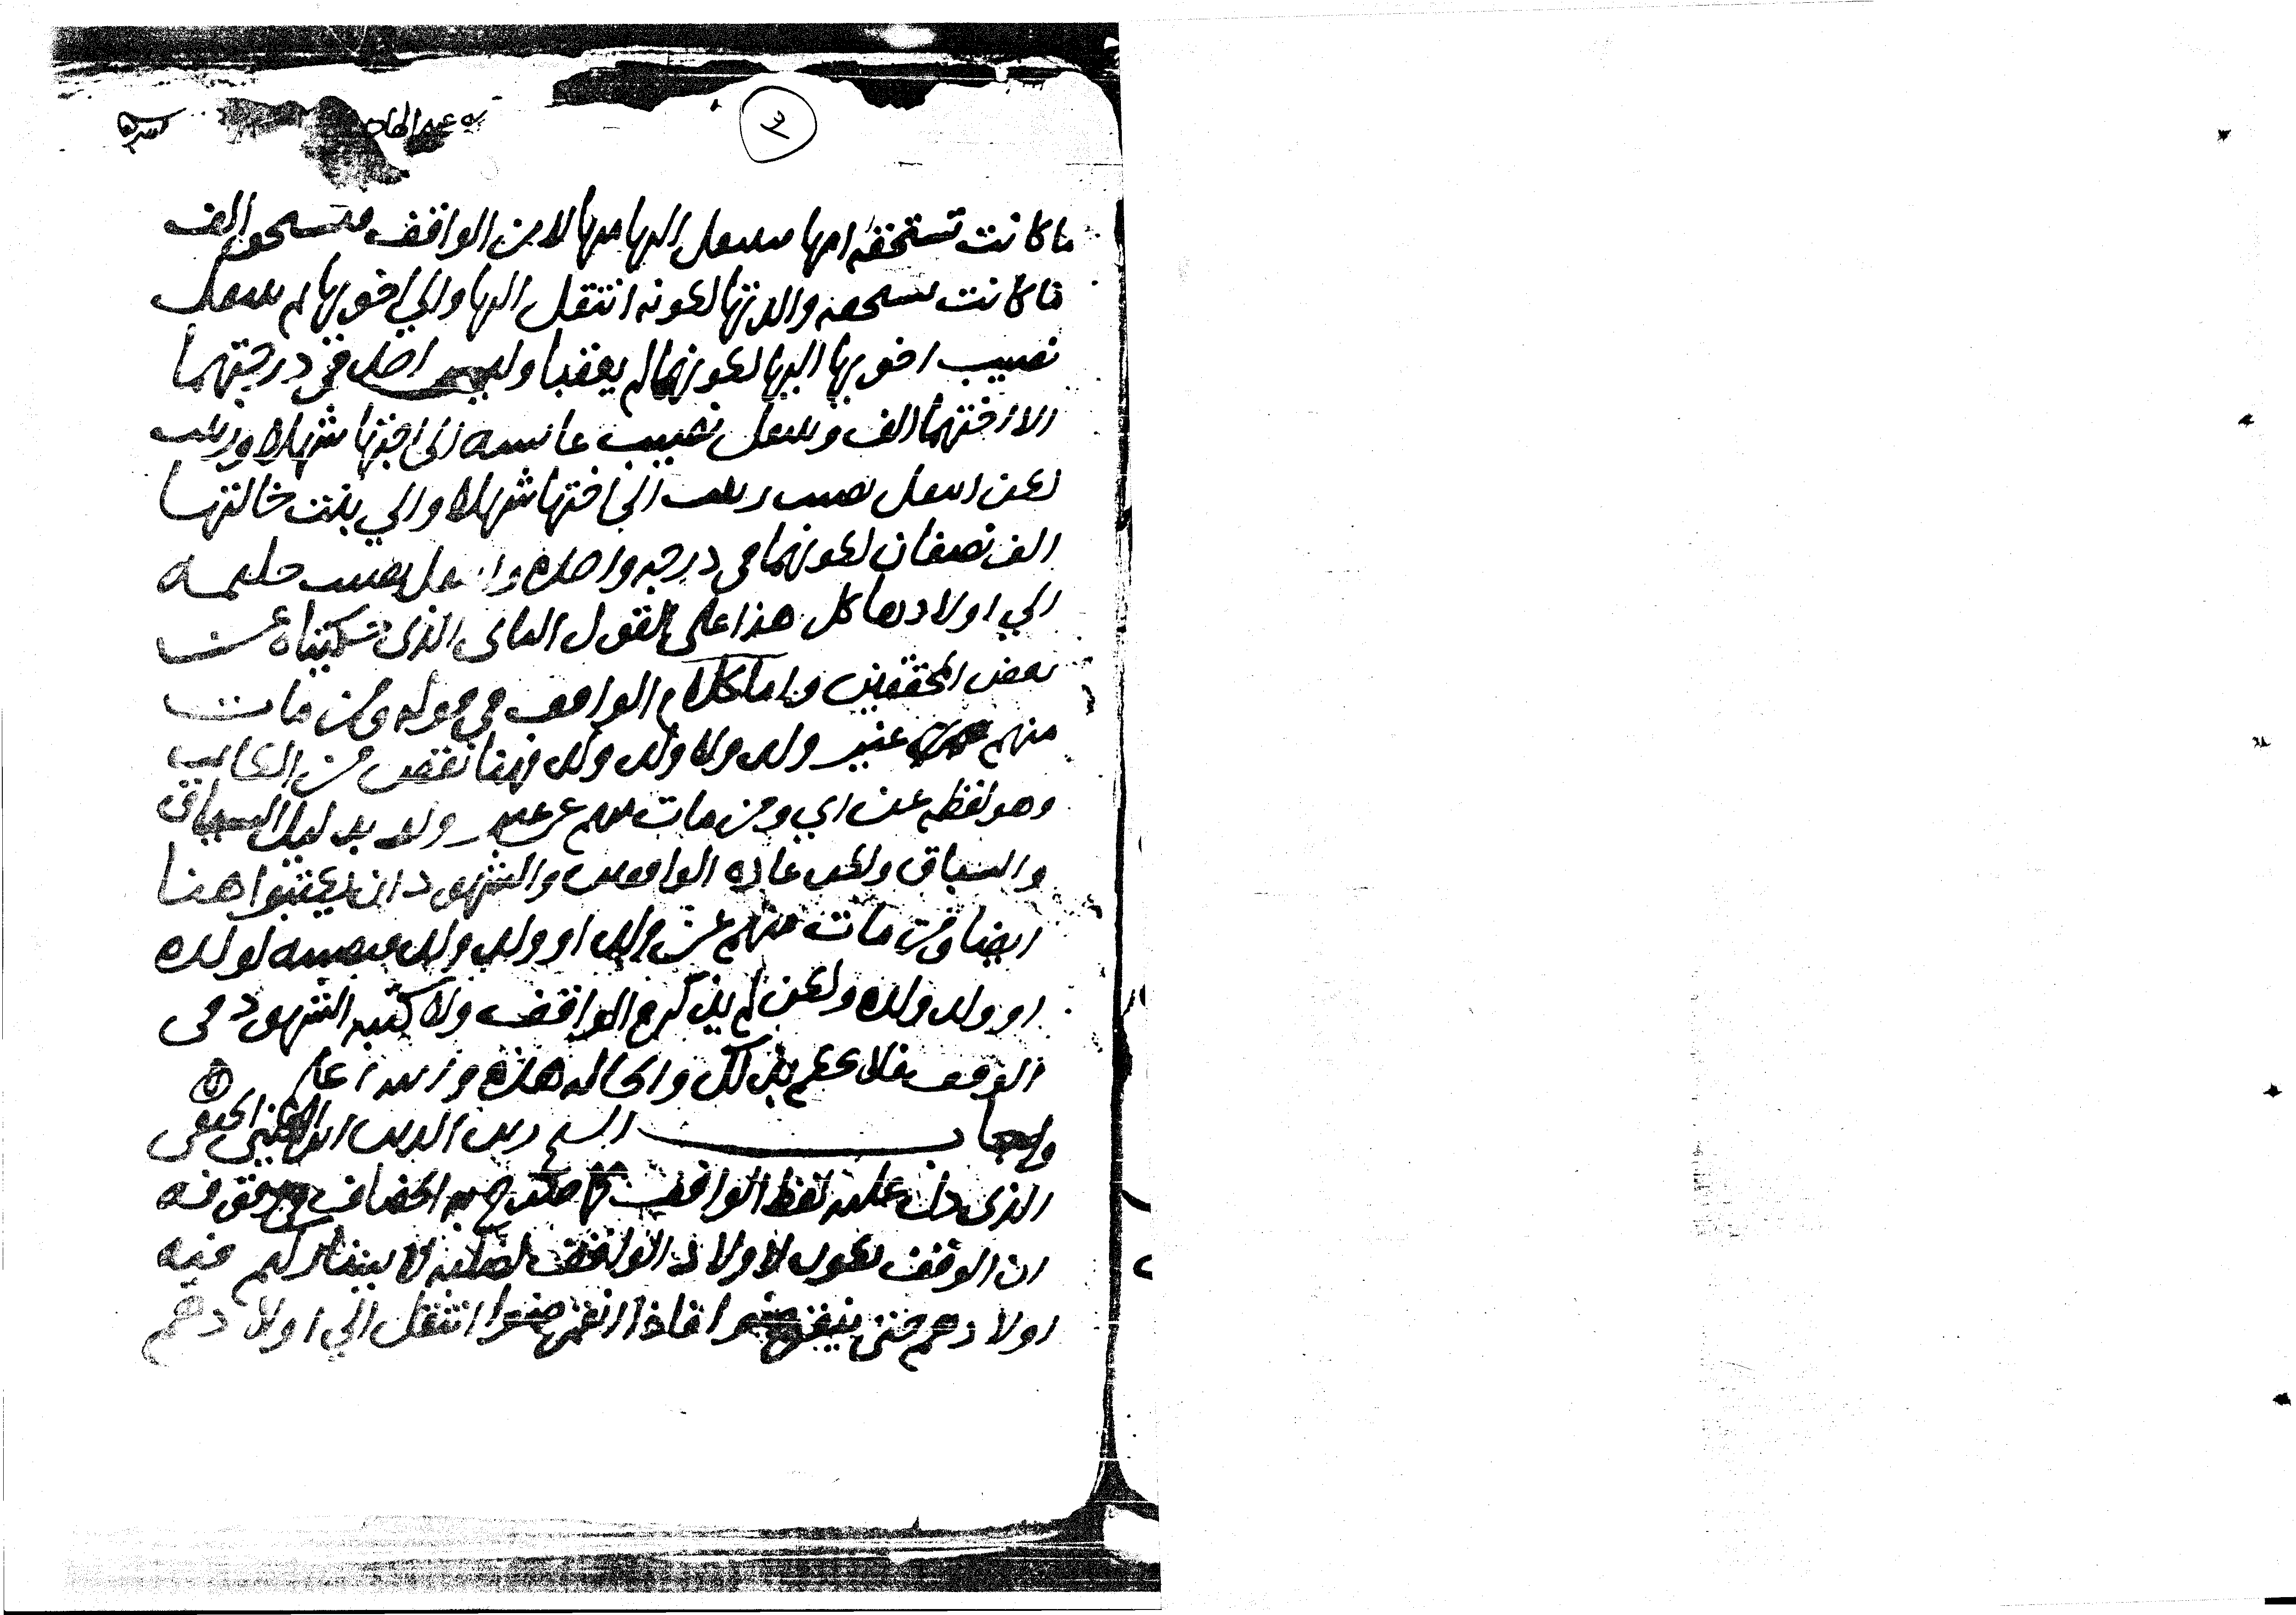 ما كانت تستحقه امها ينتقل اليها منها لا من الواقف فتستحق الف
ما كانت تستحقه والدتها لكونه انتقل اليها والي اخويها ثم ينتقل
نصيب اخويها اليها لكونهما لم يعقبا وليس احد في درجتهما
الا اختهما الف وينتقل نصيب عايشه الى اختها شهلا وزينب
لكن انتقل نصيب زينب الى اختها شهلا والي بنت خالتها
الف نصفان لكونهما في درجه واحده وانتقل نصيب حليمه
الي اولادها كل هذا على القول الثاني الذي حكيناه عن
بعض المحققين واما كلام الواقف في قوله ومن مات
منهم غير ولد ولا ولد ولد فهنا نقص من الكاتب
وهو لفظه عن اي ومن مات منهم عن غير ولد بدليل السياق
والسباق ولكن عاده الواقفين والشهود ان يكتبوا هنا
ايضا ومن مات منهم عن ولد او ولد ولد فنصيبه لولده
او ولد ولده ولكن لم يذكره الواقف ولا كتبه الشهود في
الوقف فلا يحكم بذلك والحاله هذه والله اعلم
واجاب الشيخ زين الدين الحنفي
الذي دل عليه لفظ الواقف كما صرح به الخصاف في وقفه
ان الوقف يكون لاولاد الواقف لصلبه لا يشاركهم فيه
اولادهم حتى ينقرضوا فاذا انقرضوا انتقل الي اولادهم